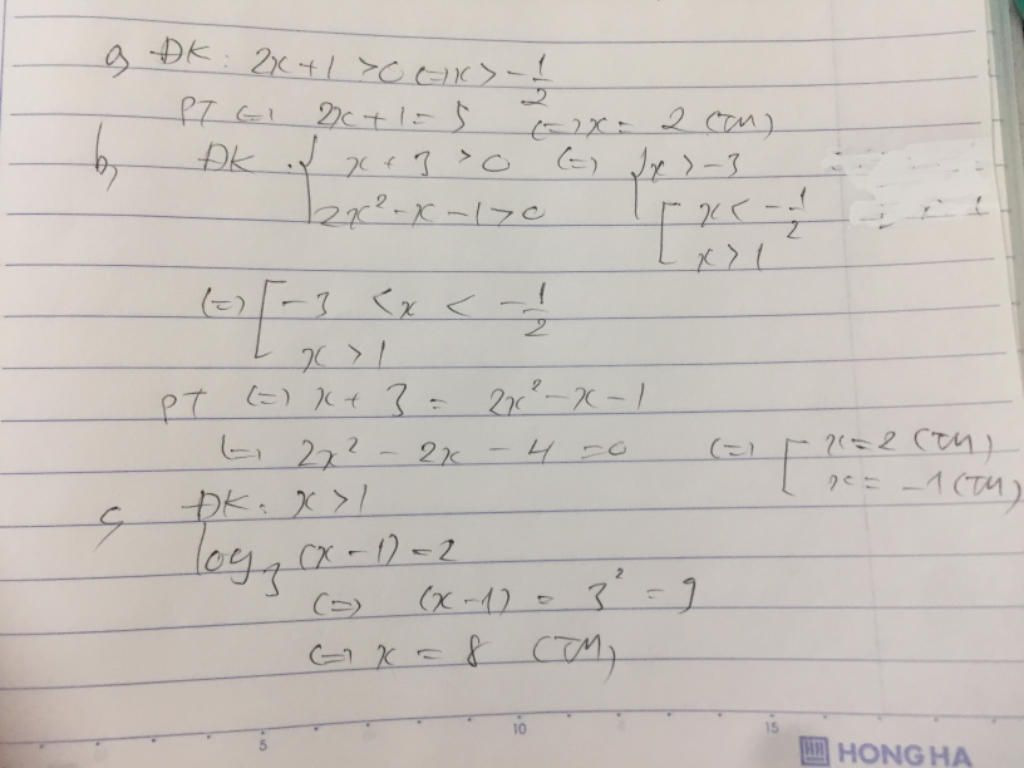 a, ĐK: 2x+1 >0 (=) x > -1/2
PT (=) 2x+1=5 (=) x = 2 (TM)
b, ĐK: { x+3 >0 (=) { x > -3
2x²-x-1>0 [ x < -1/2
x>1
(=) [ -3 < x < -1/2
x >1
PT (=) x+3 = 2x²-x-1
(=) 2x² - 2x - 4 =0 (=) [ x=2 (TM)
x = -1 (TM)
c, ĐK: x >1
log₃ (x-1) = 2
(=) (x-1) = 3² = 9
(=) x = 8 (TM)
5 10 15
HONG HA